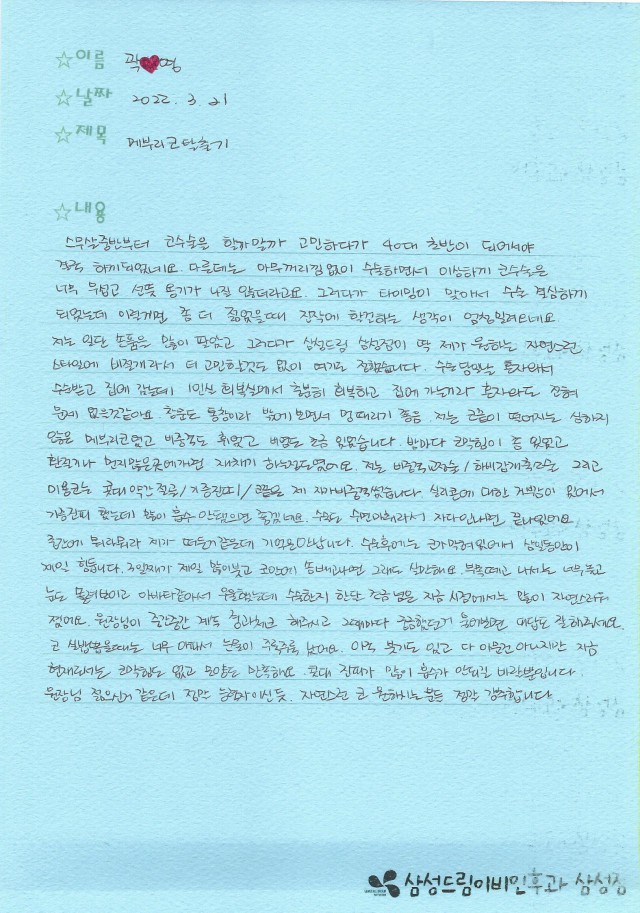 ☆이름 곽♥명
☆날짜 2022. 3. 21
☆제목 메부리코탈출기
☆내용
스무살중반부터 코수술은 할까말까 고민하다가 40대 초반이 되어서야
결국 하게되었네요. 다른데는 아무꺼리낌없이 수술하면서 이상하게 코수술은
너무 무섭고 선뜻 용기가 나질 않더라고요. 그러다가 타이밍이 맞아서 수술 결심하게
되었는데 이럴거면 좀 더 젊었을때 진작에 할걸하는 생각이 엄청밀려오네요
저는 일단 손품은 많이 팔았고 그러다가 삼성드림 삼성점이 딱 제가 원하는 자연스런
스타일에 비절개라서 더 고민할것도 없이 여기로 정했습니다. 수술당일날 혼자와서
수술받고 집에 갔는데 1인실 회복실에서 충분히 회복하고 집에 가는거라 혼자와도 전혀
문제 없을것같아요 창문도 통창이라 밖에보면서 멍때리기 좋음. 저는 코끝이 떨어지는 심하지
않은 메부리코였고 비중격도 휘었고 비염도 조금 있었습니다. 밤마다 코막힘이 좀 있었고
환절기나 먼지많은곳에가면 재채기 하는정도였어요. 저는 비중격교정술/하비갑개축소술 그리고
미용코는 콧대 약간 절골/기증진피/코끝은 제 자가비중격썼습니다. 실리콘에 대한 거부감이 있어서
기증진피 했는데 많이 흡수 안됐으면 좋겠네요. 수술도 수면마취라서 자다일나면 끝나있어요
중간에 뭐라뭐라 제가 떠든거같은데 기억은안납니다. 수술후에는 코가막혀있어서 삼일동안이
제일 힘듭니다. 3일째가 제일 많이붓고 코안에 솜빼고나면 그래도 살만해요. 부목떼고 나서는 너무붓고
눈도 몰려보이고 아바타같아서 우울했는데 수술한지 한달 조금넘은 지금 시점에서는 많이 자연스러워
졌어요. 원장님이 중간중간 계속 경과체크 해주시고 그때마다 궁금했던거 물어보면 대답도 잘해주세요.
코 실밥뽑을때는 너무 아파서 눈물이 주르륵 났어요. 아직 붓기도 있고 다 아문건 아니지만 지금
현재로서는 코막힘도 없고 모양도 만족해요. 콧대 진피가 많이 흡수가 안되길 바랄뿐입니다.
원장님 젊으신거 같은데 정말 능력자이신듯. 자연스런 코 원하시는분들 정말 강추합니다
삼성드림이비인후과 삼성점